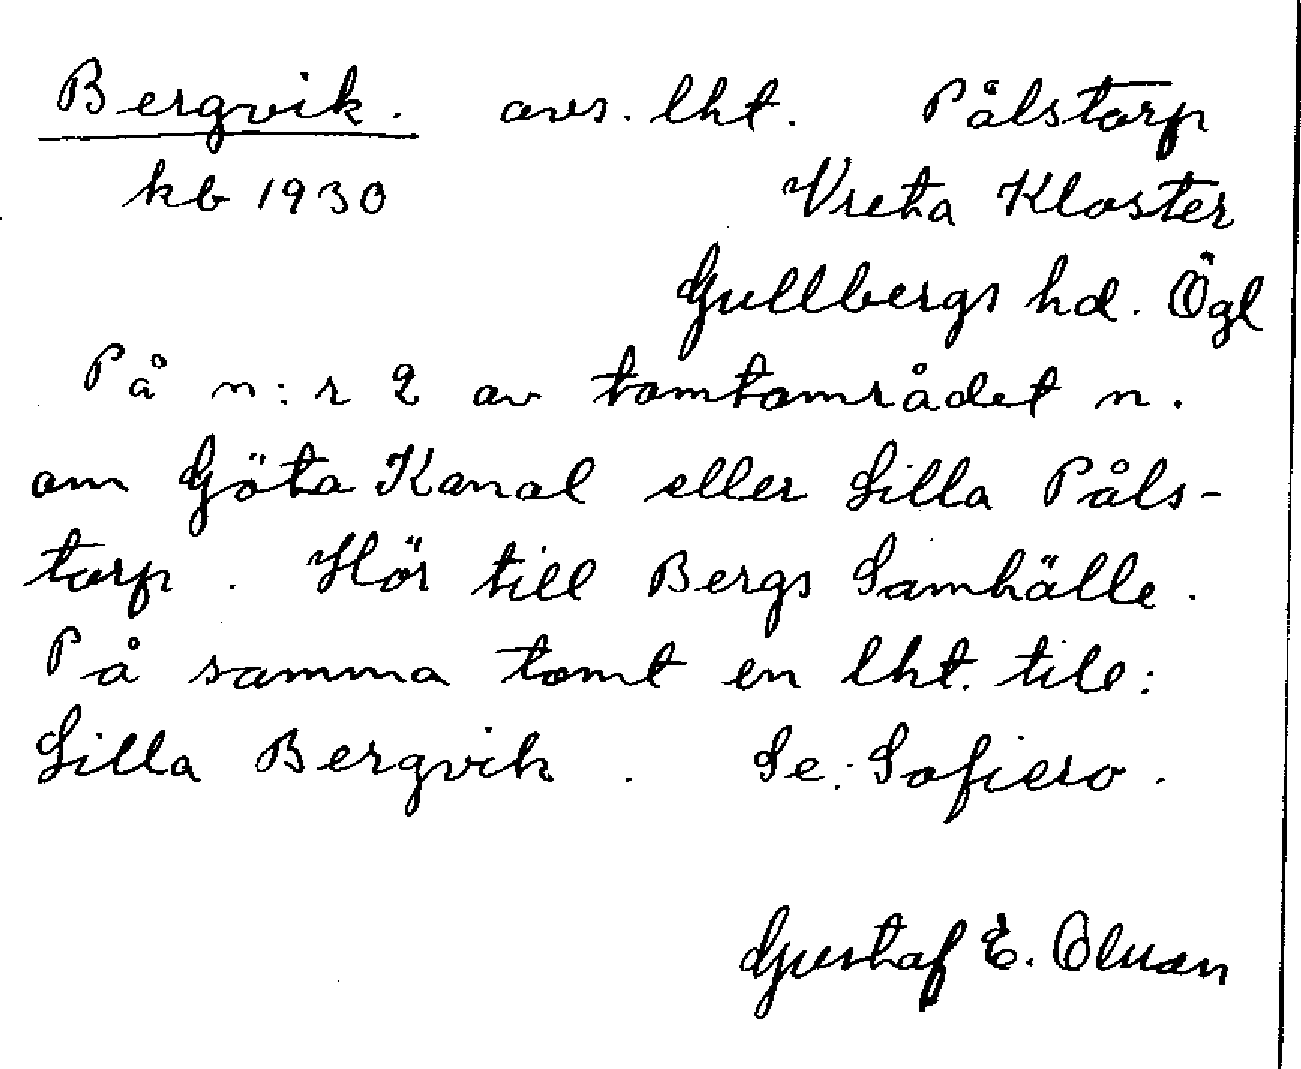 Bergvik. avs. lht. Pålstorp
kb 1930 Vreta Kloster
Gullbergs hd. Ögl
På n:r 2 av tomtområdet n.
om Göta Kanal eller Lilla Påls-
torp. Hör till Bergs Samhälle.
På samma tomt en lht. till:
Lilla Bergvik. Se: Sofiero.
Gustaf E.